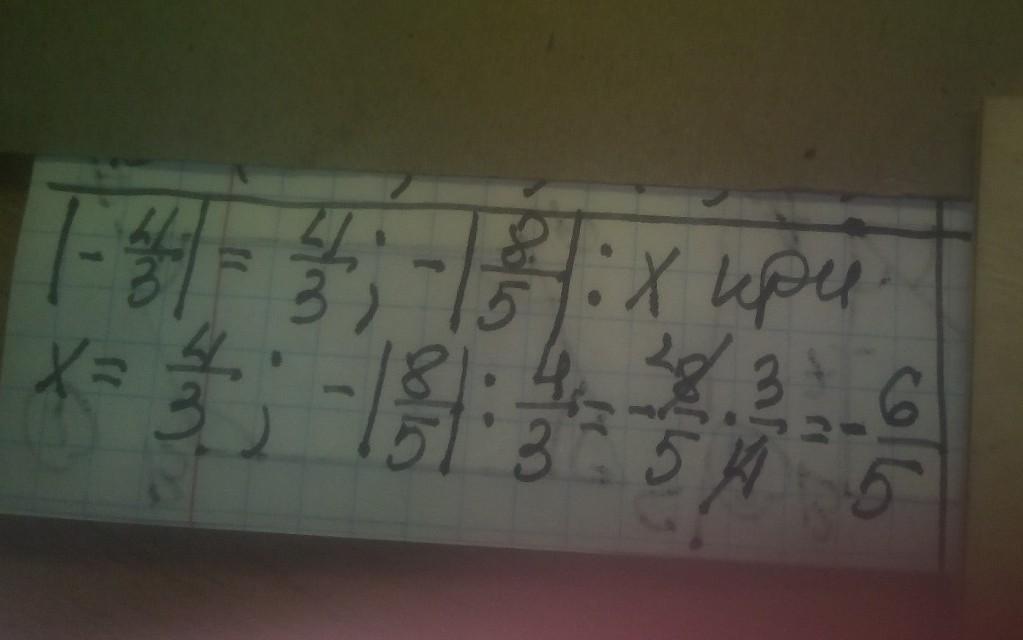 |-4/3| = 4/3; -|8/5| : x при
x = 4/3; -|8/5| : 4/3 = -8/5 · 3/4 = -6/5